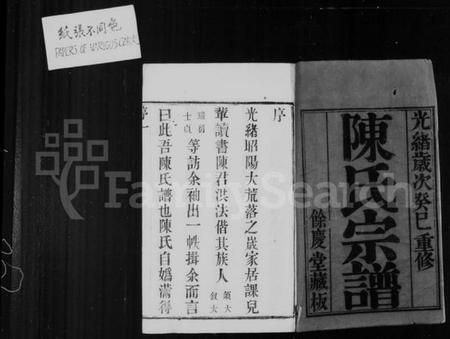 紙張不同色
PAPERS OF VARIOUS COLOR
光緒歲次癸巳重修
陳氏宗譜
餘慶堂藏板
序
光緒昭陽大荒落之歲家居課兒
輩讀書陳君洪法偕其族人
等訪余袖出一帙揖余而言
曰此吾陳氏譜也陳氏自媯滿得
序
一
FamilySearch